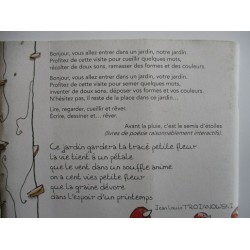 Bonjour, vous allez entrer dans un jardin, votre jardin.
Profitez de cette visite pour cueillir quelques mots,
récolter de doux sons, ramasser des formes et des couleurs.
Bonjour, vous allez entrer dans un jardin, notre jardin.
Profitez de cette visite pour semer quelques mots,
inventer de doux sons, déposer vos formes et vos couleurs.
N'hésitez pas, il reste de la place dans ce jardin...
Lire, regarder, cueillir et rêver.
Ecrire, dessiner et... rêver.
Avant la pluie, c'est le semis d'étoiles
(livres de poésie raisonnablement interactifs).
Ce jardin gardera ta trace petite fleur
la vie tient à un pétale
que le vent dans un souffle anime
on a cent vies petite fleur...
que la graine dévore
dans l'espoir d'un printemps
Jean Louis TROIANOWSKI